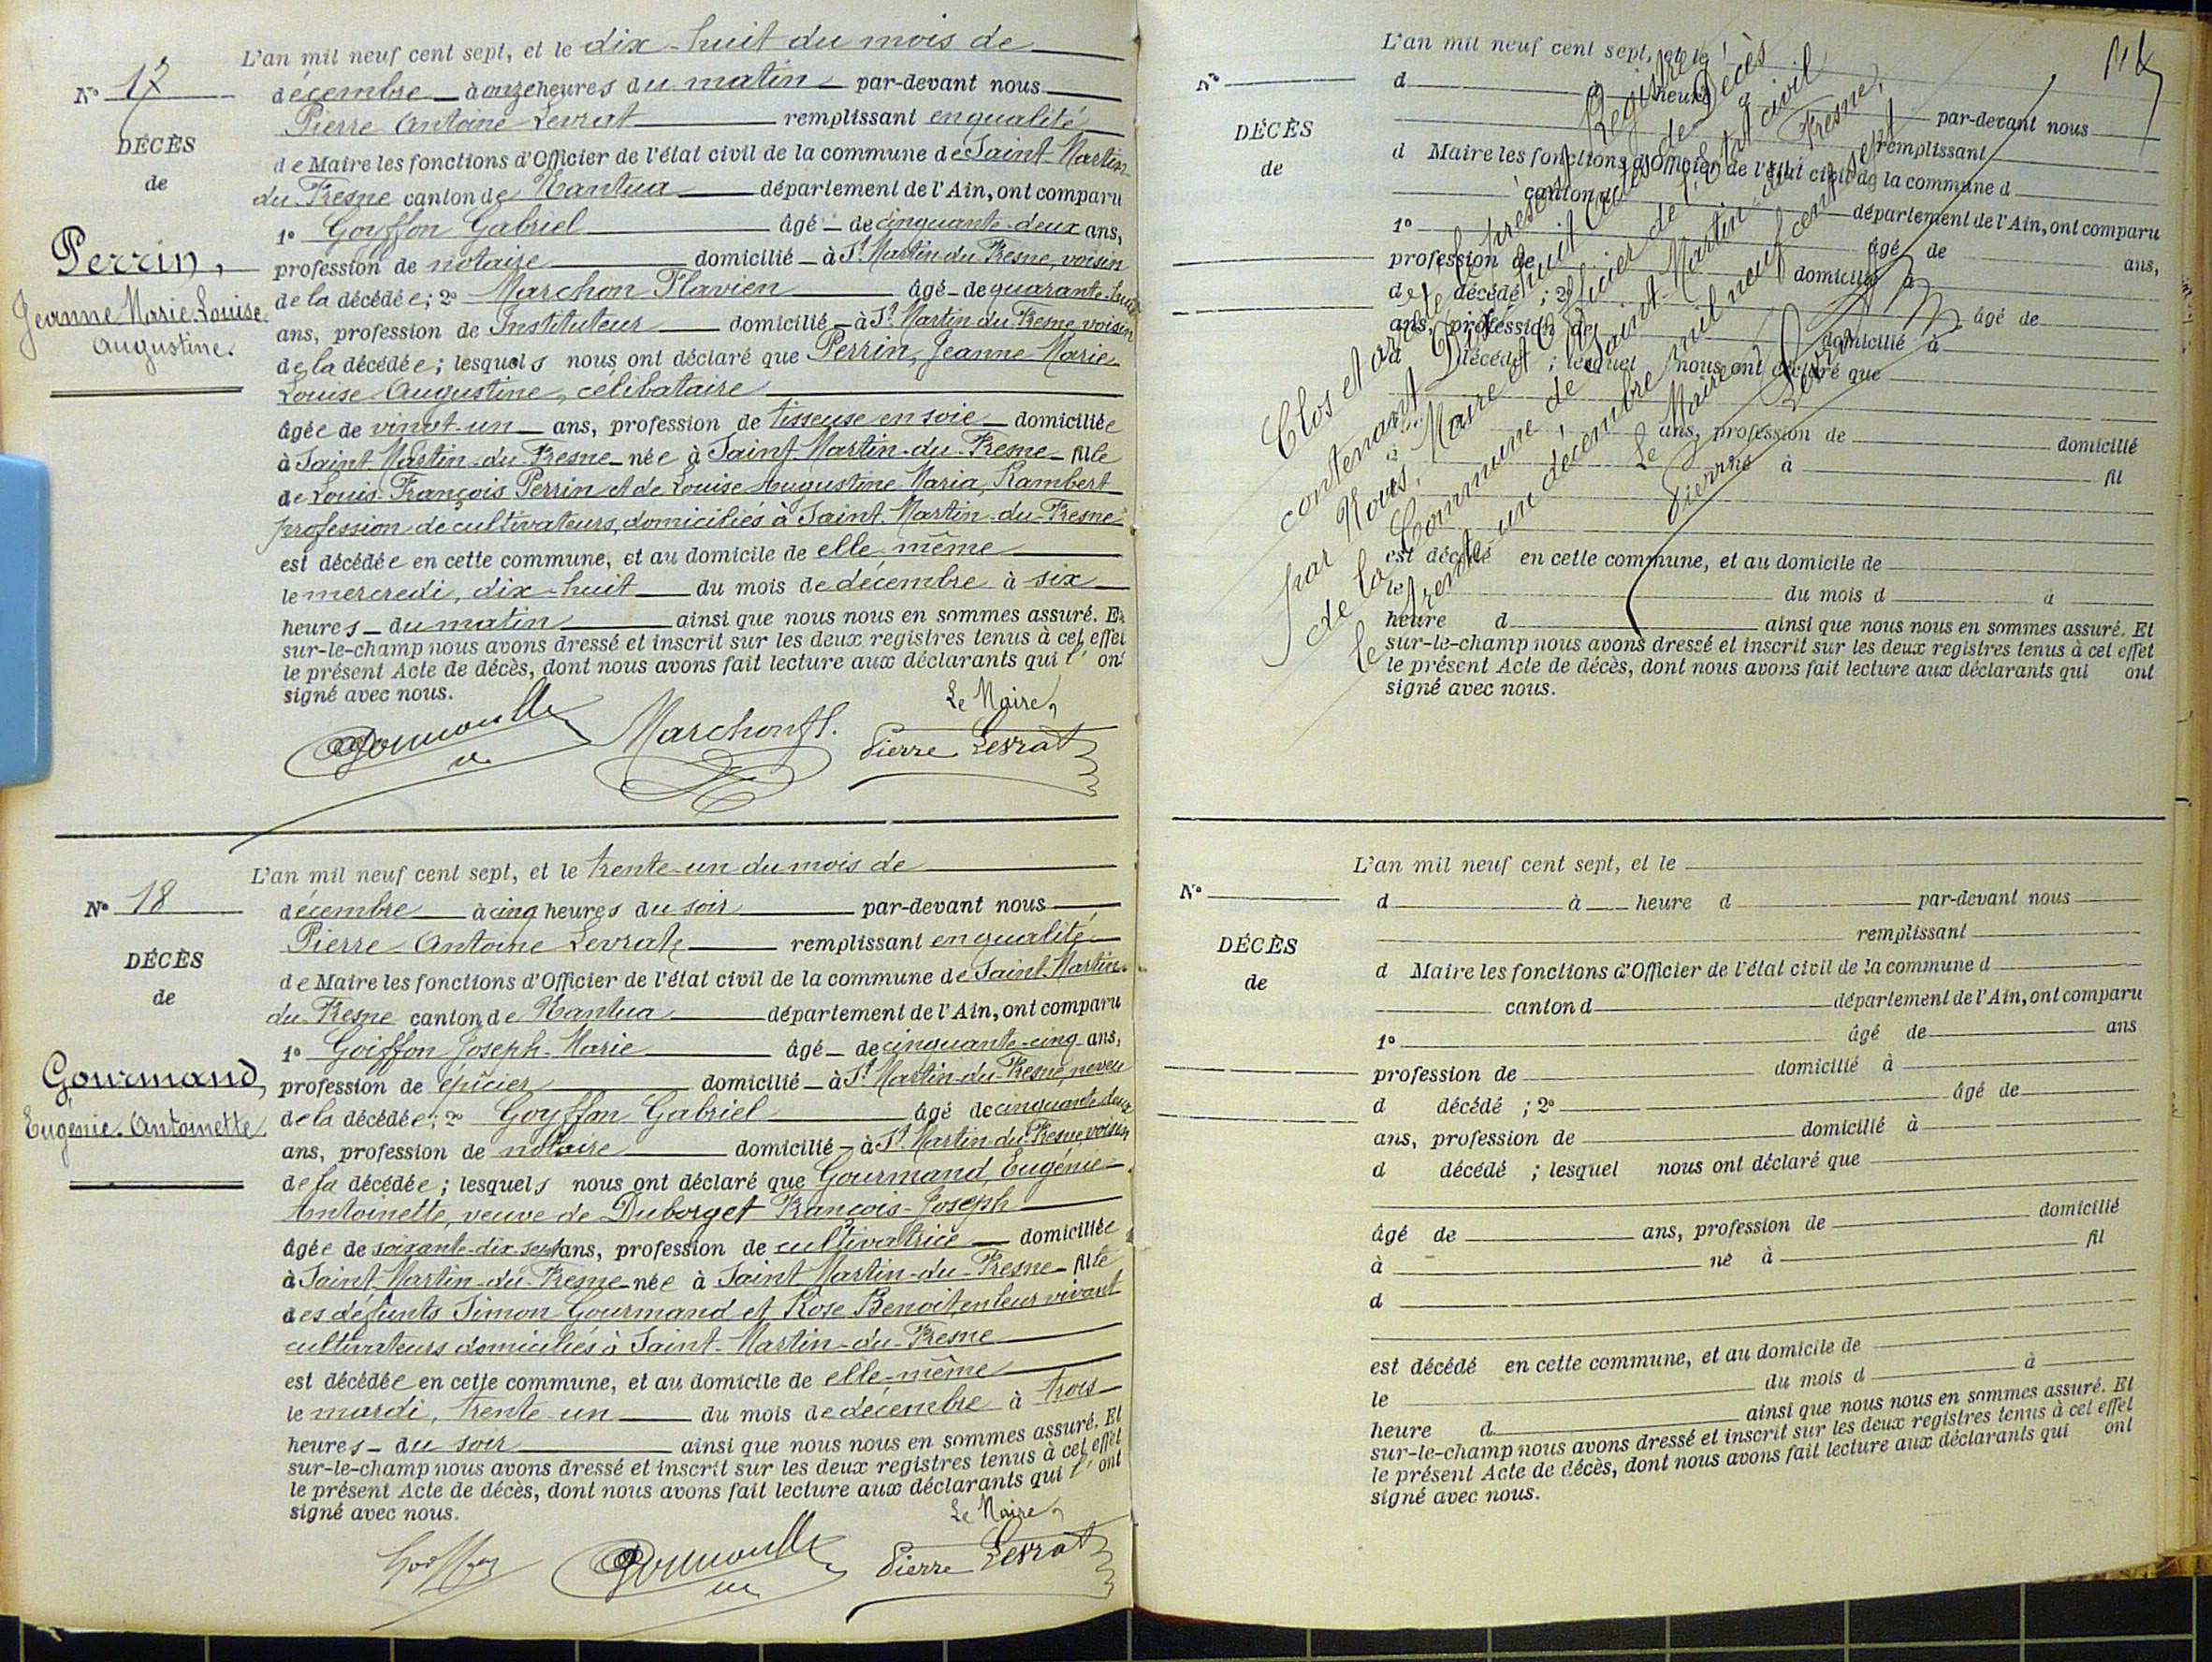 L'an mil neuf cent sept, et le dix-huit du mois de
N° 17
décembre à onze heures du matin par-devant nous
Pierre Antoine Levrat remplissant en qualité
DÉCÈS
de Maire les fonctions d'Officier de l'état civil de la commune de Saint-Martin
de
du Fresne canton de Nantua département de l'Ain, ont comparu
1° Goyffon Gabriel âgé de cinquante-deux ans,
Perrin,
profession de notaire domicilié à St Martin du Fresne, voisin
Jeanne Marie-Louise
de la décédée; 2° Marchon Flavien âgé de quarante-huit
Augustine.
ans, profession de Instituteur domicilié à St Martin du Fresne, voisin
de la décédée; lesquels nous ont déclaré que Perrin, Jeanne Marie
Louise Augustine, célibataire
âgée de vingt-un ans, profession de tisseuse en soie domiciliée
à Saint-Martin-du-Fresne née à Saint-Martin-du-Fresne fille
de Louis-François Perrin et de Louise Augustine Maria, Rambert
profession de cultivateurs, domiciliés à Saint-Martin-du-Fresne
est décédée en cette commune, et au domicile de elle-même
le mercredi, dix-huit du mois de décembre à six
heures du matin ainsi que nous nous en sommes assuré. Et
sur-le-champ nous avons dressé et inscrit sur les deux registres tenus à cet effet
le présent Acte de décès, dont nous avons fait lecture aux déclarants qui l'ont
signé avec nous.
Le Maire,
Marchon fl. Pierre Levrat
L'an mil neuf cent sept, et le trente-un du mois de
N° 18
décembre à cinq heures du soir par-devant nous
Pierre-Antoine Levrat remplissant en qualité
DÉCÈS
de Maire les fonctions d'Officier de l'état civil de la commune de Saint-Martin
de
du Fresne canton de Nantua département de l'Ain, ont comparu
1° Goiffon Joseph-Marie âgé de cinquante-cinq ans,
Gourmand,
profession de épicier domicilié à St Martin-du-Fresne, neveu
Eugénie-Antoinette.
de la décédée; 2° Goyffon Gabriel âgé de cinquante-deux
ans, profession de notaire domicilié à St Martin-du-Fresne, voisin
de la décédée; lesquels nous ont déclaré que Gourmand, Eugénie
Antoinette, veuve de Duborget François-Joseph
âgée de soixante-dix-sept ans, profession de cultivatrice domiciliée
à Saint-Martin-du-Fresne née à Saint-Martin-du-Fresne fille
des défunts Simon Gourmand et Rose Benoit en leur vivant
cultivateurs domiciliés à Saint-Martin-du-Fresne
est décédée en cette commune, et au domicile de elle-même
le mardi, trente-un du mois de décembre à trois
heures du soir ainsi que nous nous en sommes assuré. Et
sur-le-champ nous avons dressé et inscrit sur les deux registres tenus à cet effet
le présent Acte de décès, dont nous avons fait lecture aux déclarants qui l'ont
signé avec nous.
Le Maire,
Goiffon Pierre Levrat
L'an mil neuf cent sept, et le
N°
d à heure d par-devant nous
remplissant
DÉCÈS
d Maire les fonctions d'Officier de l'état civil de la commune d
de
canton d département de l'Ain, ont comparu
1° âgé de ans,
profession de domicilié à
d décédé ; 2° âgé de
ans, profession de domicilié à
d décédé ; lesquel nous ont déclaré que
ans, profession de domicilié
à né à fil
est décédé en cette commune, et au domicile de
le du mois d à
heure d ainsi que nous nous en sommes assuré. Et
sur-le-champ nous avons dressé et inscrit sur les deux registres tenus à cet effet
le présent Acte de décès, dont nous avons fait lecture aux déclarants qui ont
signé avec nous.
Clos et arrêté le présent Registre
contenant Dix-huit actes de Décès
par Nous, Maire et Officier de l'Etat civil
de la Commune de Saint-Martin-du Fresne,
le trente un décembre mil neuf cent sept
Le Maire,
Pierre Levrat
L'an mil neuf cent sept, et le
N°
d à heure d par-devant nous
remplissant
DÉCÈS
d Maire les fonctions d'Officier de l'état civil de la commune d
de
canton d département de l'Ain, ont comparu
1° âgé de ans
profession de domicilié à
d décédé ; 2° âgé de
ans, profession de domicilié à
d décédé ; lesquel nous ont déclaré que
âgé de ans, profession de domicilié
à né à fil
d
est décédé en cette commune, et au domicile de
le du mois d à
heure d ainsi que nous nous en sommes assuré. Et
sur-le-champ nous avons dressé et inscrit sur les deux registres tenus à cet effet
le présent Acte de décès, dont nous avons fait lecture aux déclarants qui ont
signé avec nous.